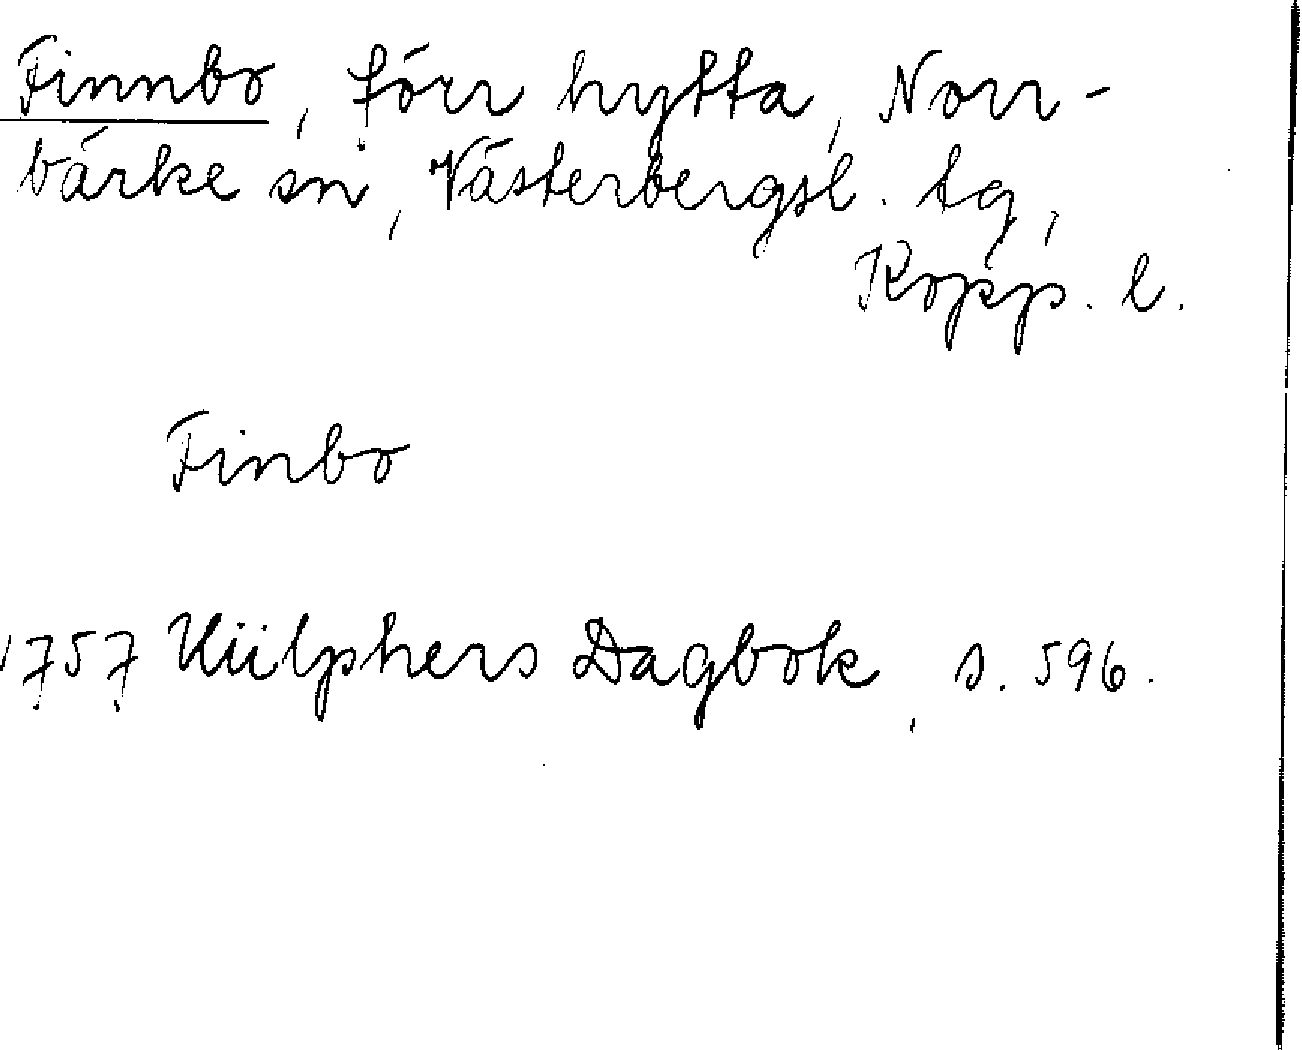 Finnbo, förr hytta, Norr-
bärke sn, Västerbergsl. tg,
Kopp. l.
Finbo
1757 Hülphers Dagbok, s. 596.